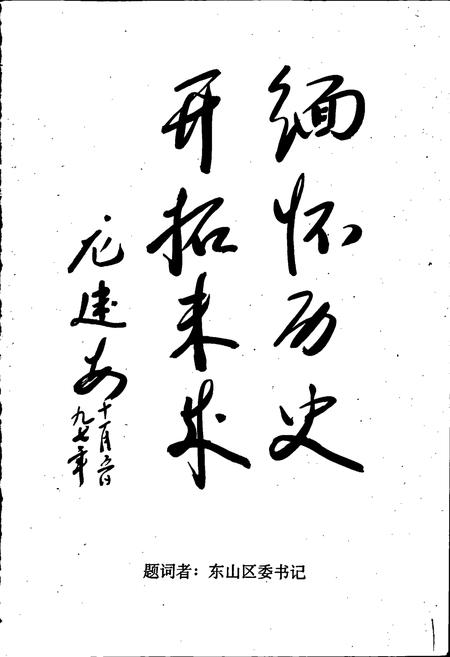 缅怀历史
开拓未来
龙建安
九七年
十一月六日
题词者：东山区委书记